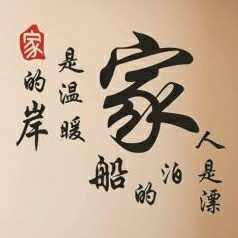 人是漂
泊的船
家
是温暖
的岸
家